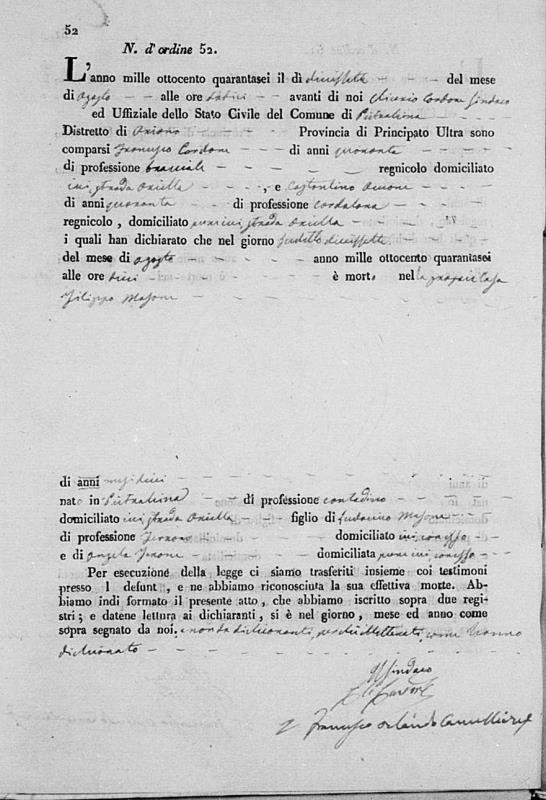 52
N. d'ordine 52.
L'anno mille ottocento quarantasei il dì diecissette del mese
di Agosto alle ore avanti di noi Cardone Sindaco
ed Uffiziale dello Stato Civile del Comune di Pietrelcina
Distretto di Ariano Provincia di Principato Ultra sono
comparsi Francesco Cardone di anni quaranta
di professione bracciale regnicolo domiciliato
ivi strada , e Costantino
di anni quaranta di professione
regnicolo, domiciliato pure ivi strada
i quali han dichiarato che nel giorno sudetto diecissette
del mese di Agosto anno mille ottocento quarantasei
alle ore dieci è morto nella propria Casa
Filippo Masone
di anni mesi dieci
nato in Pietrelcina di professione contadino
domiciliato ivi strada figlio di Masone
di professione domiciliato ivi
e di Angela domiciliata pure ivi
Per esecuzione della legge ci siamo trasferiti insieme coi testimoni
presso l defunt , e ne abbiamo riconosciuta la sua effettiva morte. Ab-
biamo indi formato il presente atto, che abbiamo iscritto sopra due regi-
stri; e datene lettura ai dichiaranti, si è nel giorno, mese ed anno come
sopra segnato da noi, e non da dichiaranti, perché illetterati come hanno
dichiarato
Il Sindaco
Francesco Orlando Cancelliere